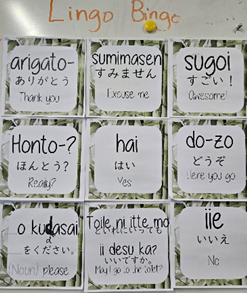 Lingo Bingo
arigato-
ありがとう
Thank you
sumimasen
すみません
Excuse me
sugoi
すごい！
Awesome!
Honto-?
ほんとう？
Really?
hai
はい
Yes
do-zo
どうぞ
Here you go
o kudasai
をください。
(Noun) please
Toile ni itte mo
といれにいっても
ii desu ka?
いいですか。
May I go to the toilet?
iie
いいえ
No